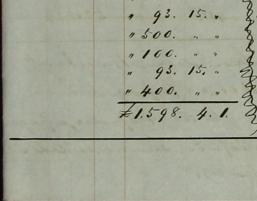 " 93. 15. "
" 500. " "
" 100. " "
" 93. 15. "
" 400. " "
£1.598. 4. 1.